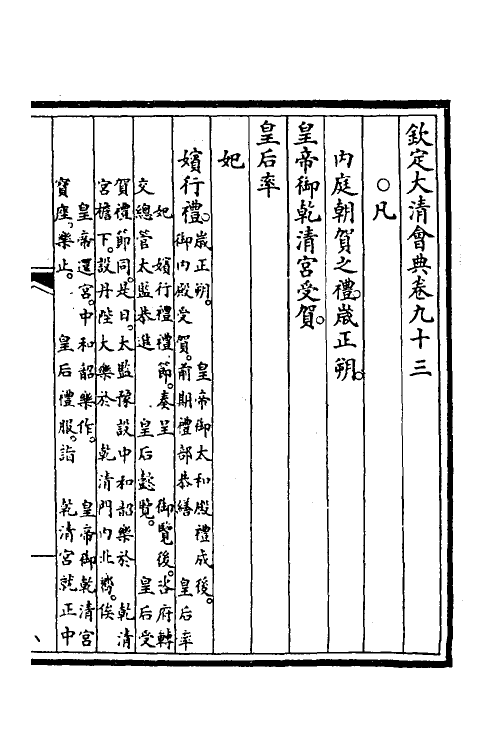 欽定大清會典卷九十三
○凡
内庭朝賀之禮。嵗正朔。
皇帝御乾清宮受賀。
皇后率
妃
嬪行禮。
嵗正朔。 皇帝御太和殿禮成後。
御内殿受賀。前期禮部恭繕 皇后率
妃 嬪行禮禮節。奏呈 御覽後。咨府轉
交總管太監恭進 皇后懿覽。 皇后受
賀禮節同。是日。太監豫設中和韶樂於 乾清
宮檐下。設丹陛大樂於 乾清門内北嚮。俟
皇帝還宮。中和韶樂作。 皇帝御乾清宮
寶座。樂止。 皇后禮服。詣 乾清宮就正中